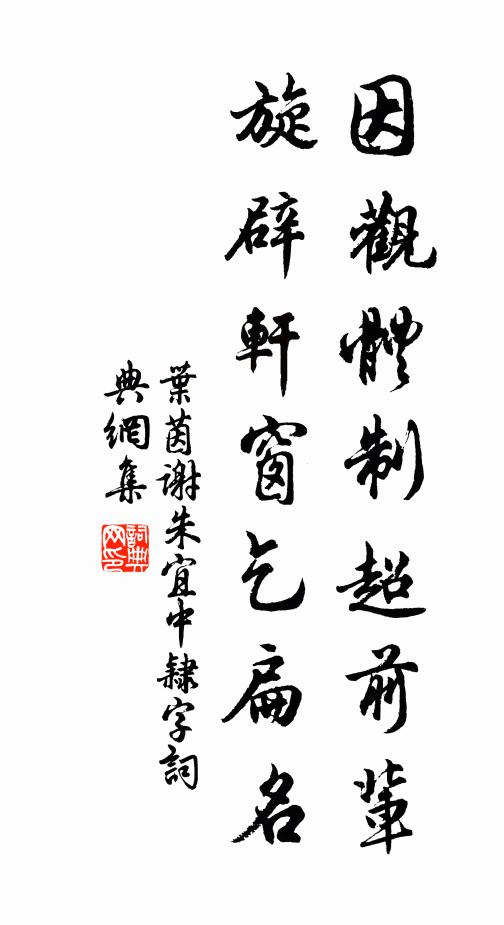 因觀體制超前輩
旋辟軒窗乞扁名
葉茵謝朱宜中隸字詞
典網集
詞典
网印